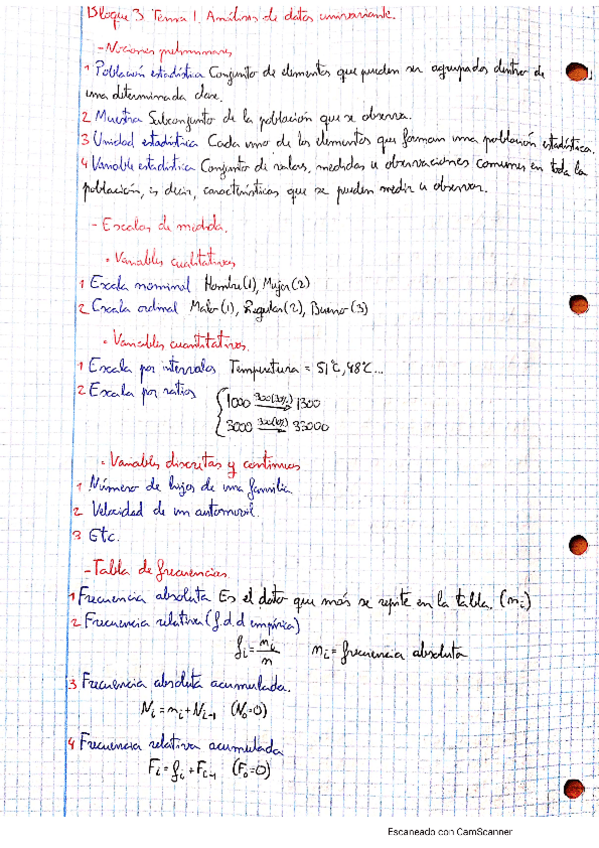 Bloque 3 Tema 1. Análisis de datos univariante.
- Nociones preliminares
1 Población estadística Conjunto de elementos que pueden ser agrupados dentro de
una determinada clase.
2 Muestra Subconjunto de la población que se observa.
3 Unidad estadística Cada uno de los elementos que forman una población estadística.
4 Variable estadística Conjunto de valores, medidas u observaciones comunes en toda la
población, es decir, características que se pueden medir u observar.
- Escalas de medida.
• Variables cualitativas
1 Escala nominal Hombre (1), Mujer (2)
2 Escala ordinal Malo (1), Regular (2), Bueno (3)
• Variables cuantitativas.
1 Escala por intervalos Temperatura = 51°C, 48°C...
2 Escala por ratios
1000 300(30%) 1300
3000 300(10%) 33000
• Variables discretas y continuas
1 Número de hijos de una familia
2 Velocidad de un automovil.
3 Etc.
- Tabla de frecuencias
1 Frecuencia absoluta Es el dato que más se repite en la tabla. (ni)
2 Frecuencia relativa (f.d.d empírica)
fi = ni/n ni = frecuencia absoluta
3 Frecuencia absoluta acumulada.
Ni = ni + Ni-1 (N0=0)
4 Frecuencia relativa acumulada
Fi = fi + Fi-1 (F0=0)
Escaneado con CamScanner